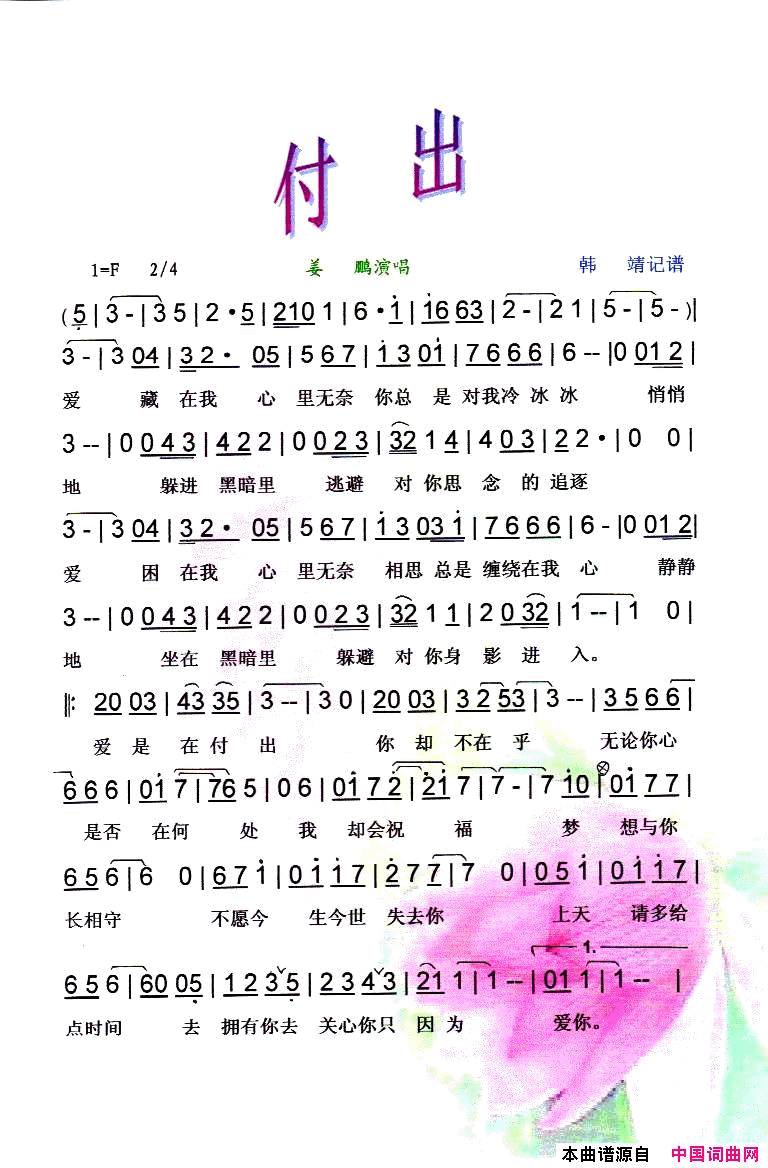 付出
1=F 2/4 姜 鹏演唱 韩 靖记谱
(5|3-|35|2·5|2101|6·i|i663|2-|21|5|5-)|
3-|304|32· 05|567|i30i|7666|6--|0012|
爱 藏 在我 心 里无奈 你总 是 对我冷 冰 冰 悄悄
3--|0043|422|0023|3214|403|22·|0 0|
地 躲进 黑暗里 逃避 对 你思 念 的 追逐
3-|304|32· 05|567|i303i|7666|6-|0012|
爱 困 在我 心 里无奈 相思 总是 缠绕在我 心 静静
3--|0043|422|0023|321|1|2032|1--|1 0|
地 坐在 黑暗里 躲避 对 你身 影 进 入。
‖: 2003|4335|3--|30|2003|3253|3--|3566|
爱 是 在 付 出 你 却 不在 乎 无论你心
666|0i7|765|06|0i72|2i7|7-|7i0|0i77|
是否 在何 处 我 却会祝 福 梦 想与你
656|6 0|67i|0ii7|277|7 0|05i|0ii7|
长相守 不愿今 生今世 失去你 上天 请多给
1.
656|6005|123ˇ5|234ˇ3|211|1--|011|1--|
点时间 去 拥有你去 关心你只 因 为 爱你。
本曲谱源自 中国词曲网